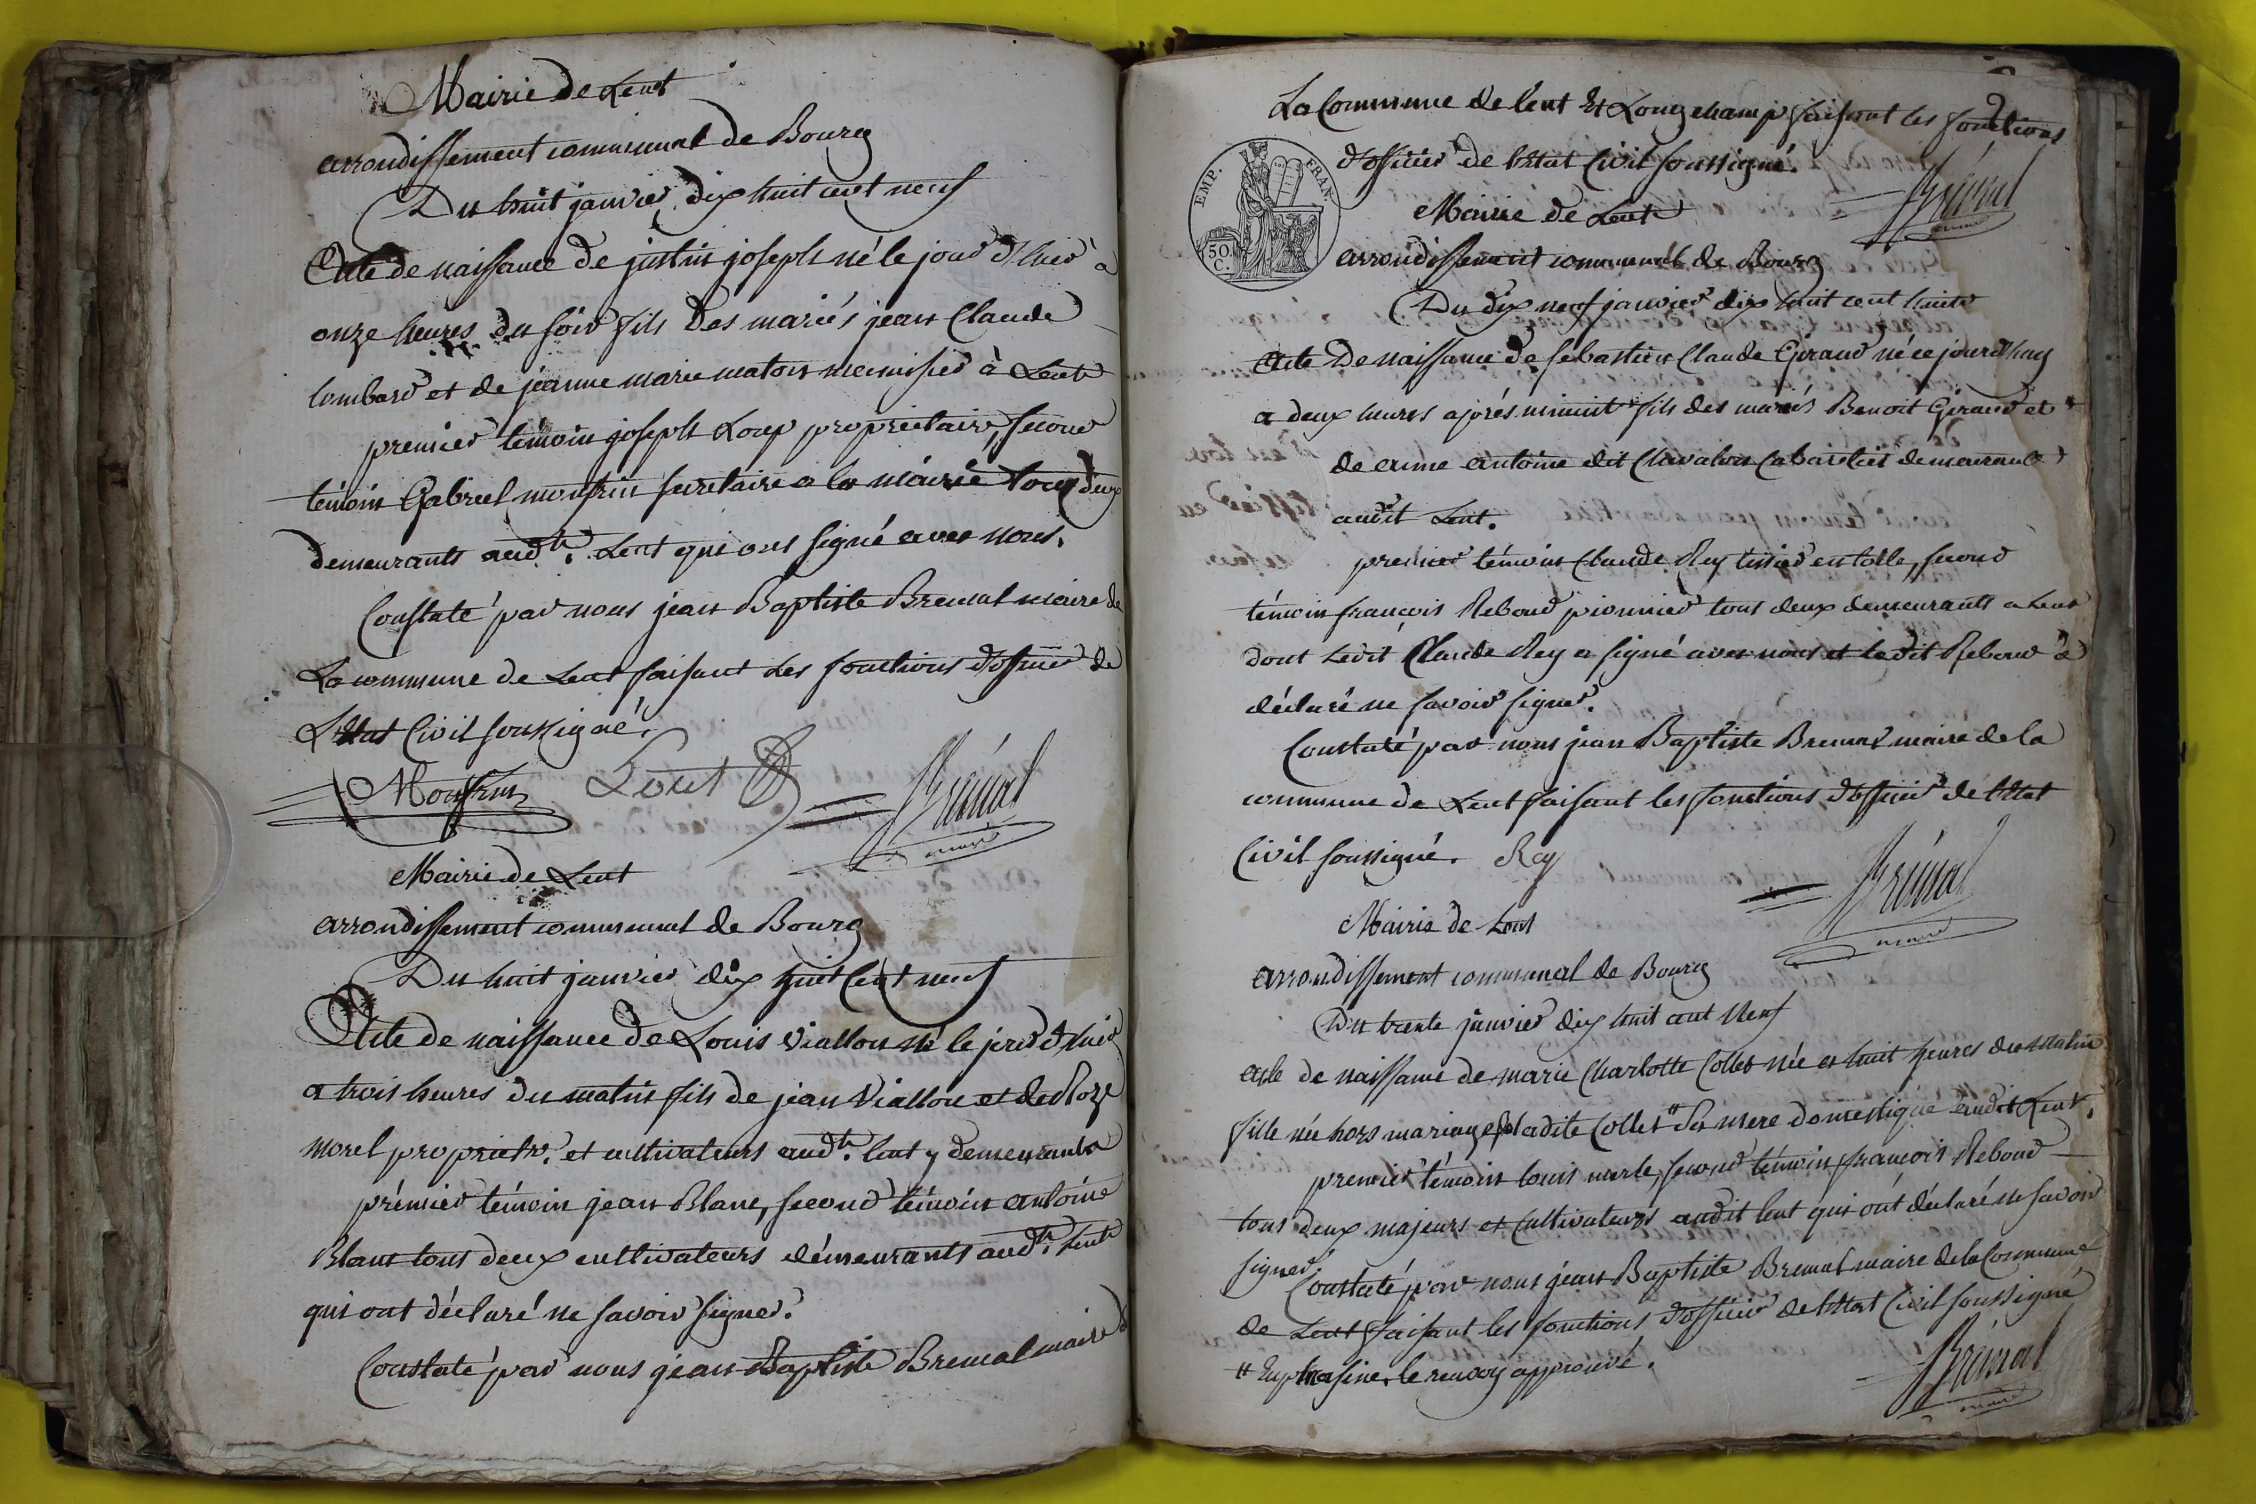 Mairie de Lent
arrondissement communal de Bourg
Du huit janvier dix huit cent neuf
Acte de naissance de justin joseph né le jour d'hier à
onze heures du soir fils des mariés jean Claude
lombard et de jeanne marie maton menuisier à Lent
premier témoin joseph Loup propriétaire, second
témoin Gabriel monfrin secretaire a la mairie tous deux
demeurants audt. Lent qui ont signé avec nous.
Constaté par nous jean Baptiste Bremal maire de
La commune de Lent faisant les fonctions d'officier de
L'état Civil soussigné.
Monfrin Lout Brémal
maire
Mairie de Lent
arrondissement communal de Bourg
Du huit janvier dix huit Cent neuf
Acte de naissance de Louis Viallon né le jour d'hier
a trois heures du matin fils de jean Viallon et de Roze
morel proprietr. et cultivateurs audt. lent y demeurants
prémier témoin jean Blanc, second témoin antoine
Blanc tous deux cultivateurs démeurants audt. lent
qui ont déclaré ne savoir signer.
Constaté par nous jean Baptiste Bremal maire d
2
La Commune de lent Et Longchamp faisant les fonctions
d'officier de l'état Civil soussigné. Brémal
maire
EMP. FRAN.
50 C.
Mairie de Lent
arrondissement communal de Bourg
Du dix neuf janvier dix huit cent
Acte De naissance de sebastien Claude Giraud né ce jourd'huy
a deux heures après minuit fils des mariés Benoit Giraud et
de anne antoine dit Chavalon Cabaretier demeurants
audit Lent.
premier témoin Claude Rey tissier en toile, second
témoin françois Reboud pionnier tous deux demeurants a Lent
dont Ledit Claude Rey a signé avec nous et ledit Reboud a
déclaré ne savoir signer.
Constaté par nous jean Baptiste Bremal maire de la
commune de Lent faisant les fonctions d'officier de l'état
Civil soussigné. Rey Brémal
maire
Mairie de Lent
arrondissement communal de Bourg
Du trente janvier dix huit cent Neuf
acte de naissance de marie Charlotte Collet née a huit heures du Matin
fille née hors mariage de ladite Collet # sa mere domestique audit Lent.
premier témoin louis merle, second témoin françois Reboud
tous deux majeurs et Cultivateurs audit lent qui ont déclaré ne savoir
signer.
Constaté par nous jean Baptiste Bremal maire de la Commune
de Lent faisant les fonctions d'officier de l'état Civil soussigné
# Euphrasine. le renvoy approuvé. Brémal
maire